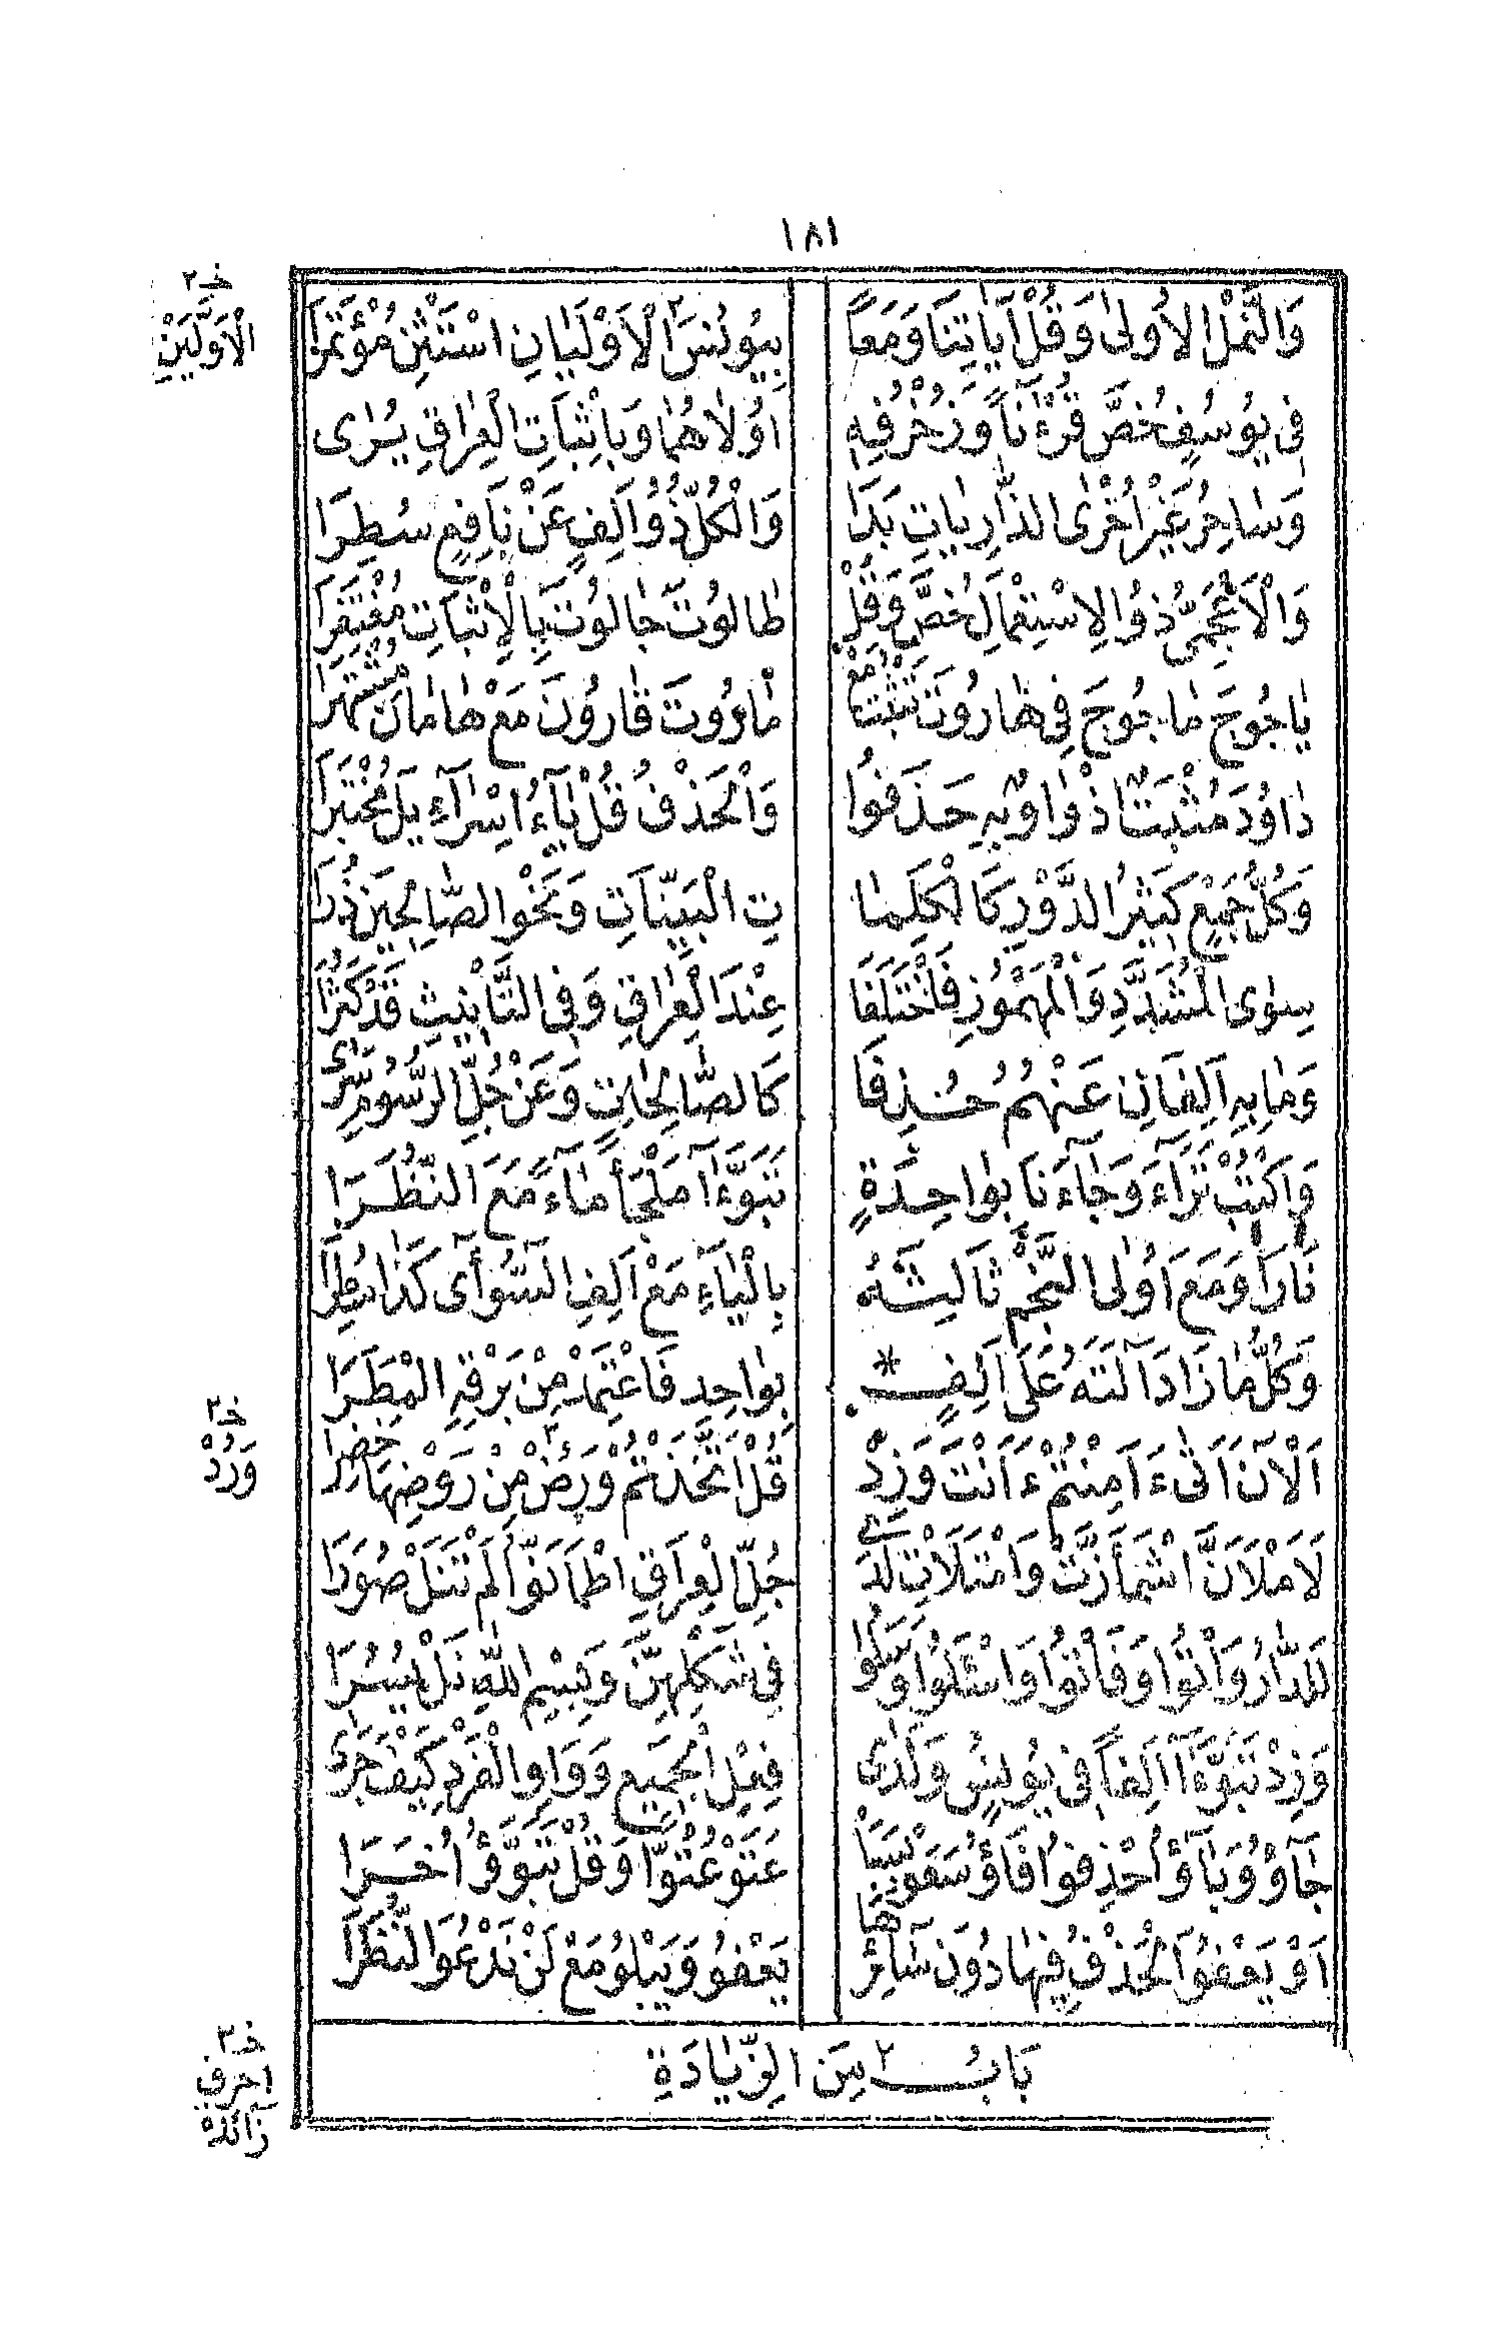 ١٨١
وَالنَّمْلِ الْأُولَىٰ وَقُلْ آيَاتِنَا وَمَعًا بِيُونُسَ الْأَوْلَيَانِ اسْتَثْنِ مُؤْتَمِرَا
خـ٢
الْأَوَّلَيْنِ
فِى يُوسُفٍ خُصَّ قُرْءَٰنًا وَزُخْرُفِهِ أُولَاهُمَا وَبِإِثْبَاتِ الْعِرَاقِ يُرَىٰ
وَسَاحِرُ غَيْرُ أُخْرَى الذَّارِيَاتِ بَدَا وَالْكُلُّ ذُو أَلِفٍ عَنْ نَافِعٍ سُطِرَا
وَالْأَعْجَمِىُّ ذُو الِاسْتِعْمَالِ خُصَّ وَقُلْ طَالُوتَ جَالُوتَ بِالْإِثْبَاتِ مُغْتَفِرَا
يَاجُوجَ مَاجُوجَ فِى هَارُونَ تَثْبُتُ مَعْ مَارُوتَ قَارُونَ مَعْ هَامَانَ مُشْتَهِرَا
دَاوُدَ مُثْبَتٌ اذْ وَاوٌ بِهِ حَذَفُوا وَالْحَذْفُ قُلْ بِيَآءِ إِسْرَآءِيلَ مُخْتَبَرَا
وَكُلُّ جَمْعٍ كَثِيرِ الدَّوْرِ كَالْكَلِمَا تِ الْبَيِّنَاتِ وَنَحْوِ الصَّالِحِينَ ذُرَا
سِوَى الْمُشَدَّدِ وَالْمَهْمُوزِ فَاخْتَلَفَا عِنْدَ الْعِرَاقِ وَفِى التَّأْنِيثِ قَدْ كَثُرَا
وَمَا بِهِ أَلِفَانِ عَنْهُمُ حُذِفَا كَالصَّالِحَاتِ وَعَنْ جُلِّ الرُّسُومِ سَرَىٰ
وَاكْتُبْ تَرَآءَ وَجَآءَنَا بِوَاحِدَةٍ تَبَوَّءَا مَلْجَأً مَآءً مَعَ النُّظَرَا
نَآ رَءَا وَمَعَ أُولَى النَّجْمِ ثَالِثَهُ بِالْيَآءِ مَعْ أَلِفِ السُّوأَى كَذَا سُطِرَا
وَكُلُّ مَا زَادَ اُولَتَهُ عَلَى أَلِفٍ * بِوَاحِدٍ فَاعْتَمِدْ مِنْ بَرْقِهِ الْمَطَرَا
اَلْآنَ اَتَىٰ ءَاٰمِنْتُمْ ءَاَنْتَ وَزِدْ قُلْ أَتَّخَذْتُمْ وَرُضْ مِنْ رَوْضِهَا خَضِرَا
خـ٣
وَرَدْ
لَأَمْلَأَنَّ اشْمَأَزَّتْ وَامْتَلَأْتِ لَدَى جُلِّ الْعِرَاقِ اطْمَأَنُّوا لَمْ تَنَلْ صُوَرَا
لَلدَّارُ وَاتُوا وَفَاتُوا وَاسْئَلُوا وَسَلُوا فِى شَكْلِهِنَّ وَبِسْمِ اللهِ نَلْ يُسُرَا
وَزِدْ تَبَوَّءَا أَلِفًا فِى يُونُسٍ وَلَدَى فِعْلِ الْجَمِيعِ وَوَاوِ الْفَرْدِ كَيْفَ جَرَى
جَآؤُ وَبَآؤُ احْذِفُوا فَاؤُ سَعَوْ بِسَبَأْ عَتَوْ عُتُوًّا وَقُلْ تَبَوَّؤُ أُخَرَا
أَوْ يَعْفُوَ الْحَذْفُ فِيهَا دُونَ سَآئِرِهَا يَعْفُو وَيَبْلُو مَعْ لَنْ نَدْعُوَ النُّظَرَا
بَابُ ٢ مِنَ الزِّيَادَةِ
خـ٣
احرف
زائدة